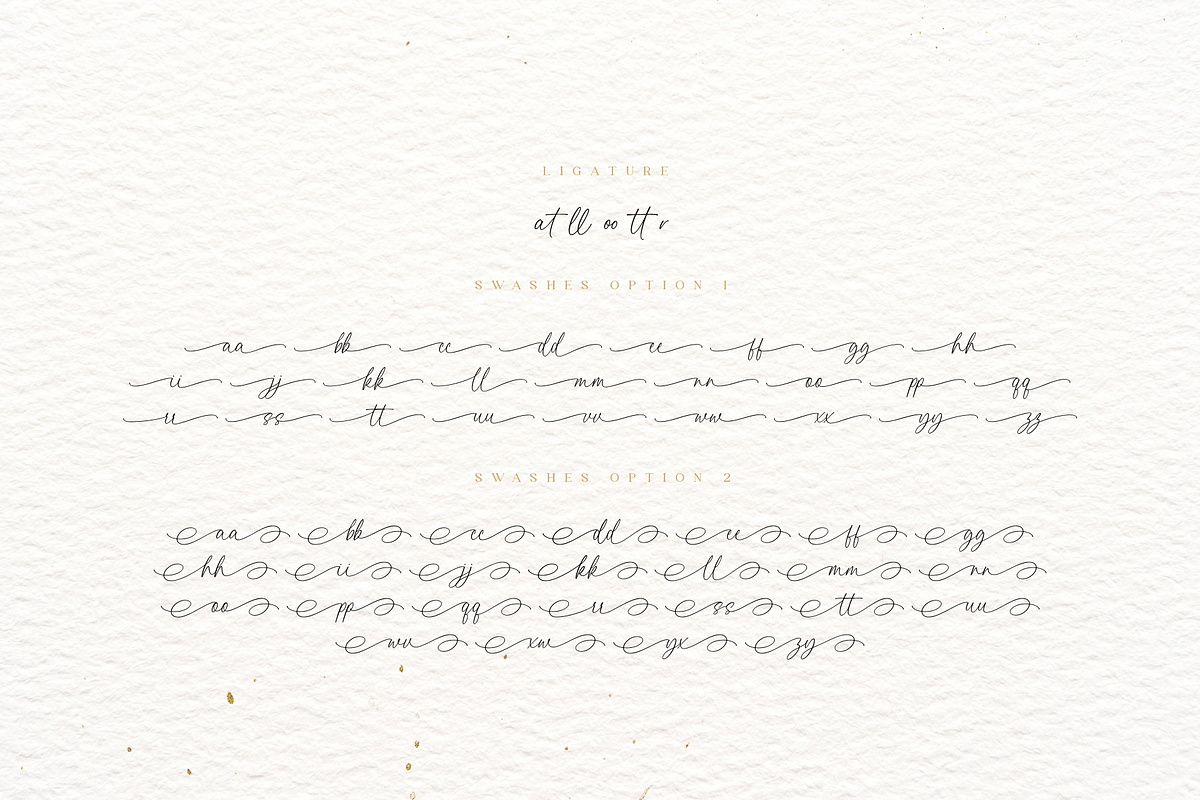 LIGATURE
at ll oo tt r
SWASHES OPTION 1
aa bb cc dd ee ff gg hh
ii jj kk ll mm nn oo pp qq
rr ss tt uu vv ww xx yy zz
SWASHES OPTION 2
aa bb cc dd ee ff gg
hh ii jj kk ll mm nn
oo pp qq rr ss tt uu
wv xw yx zy